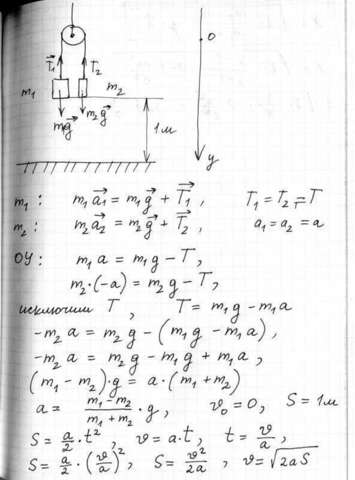 0
T⃗₁ T⃗₂
m₁ m₂
m₁g⃗ m₂g⃗
1м
y
m₁: m₁a⃗₁ = m₁g⃗ + T⃗₁, T₁ = T₂ = T
m₂: m₂a⃗₂ = m₂g⃗ + T⃗₂, a₁ = a₂ = a
ОУ: m₁a = m₁g - T,
m₂·(-a) = m₂g - T,
исключим T, T = m₁g - m₁a
-m₂a = m₂g - (m₁g - m₁a),
-m₂a = m₂g - m₁g + m₁a,
(m₁ - m₂)·g = a·(m₁ + m₂)
a = (m₁ - m₂)/(m₁ + m₂) · g, v₀ = 0, S = 1м
S = a/2 · t², v = a·t, t = v/a,
S = a/2 · (v/a)², S = v²/2a, v = √2aS